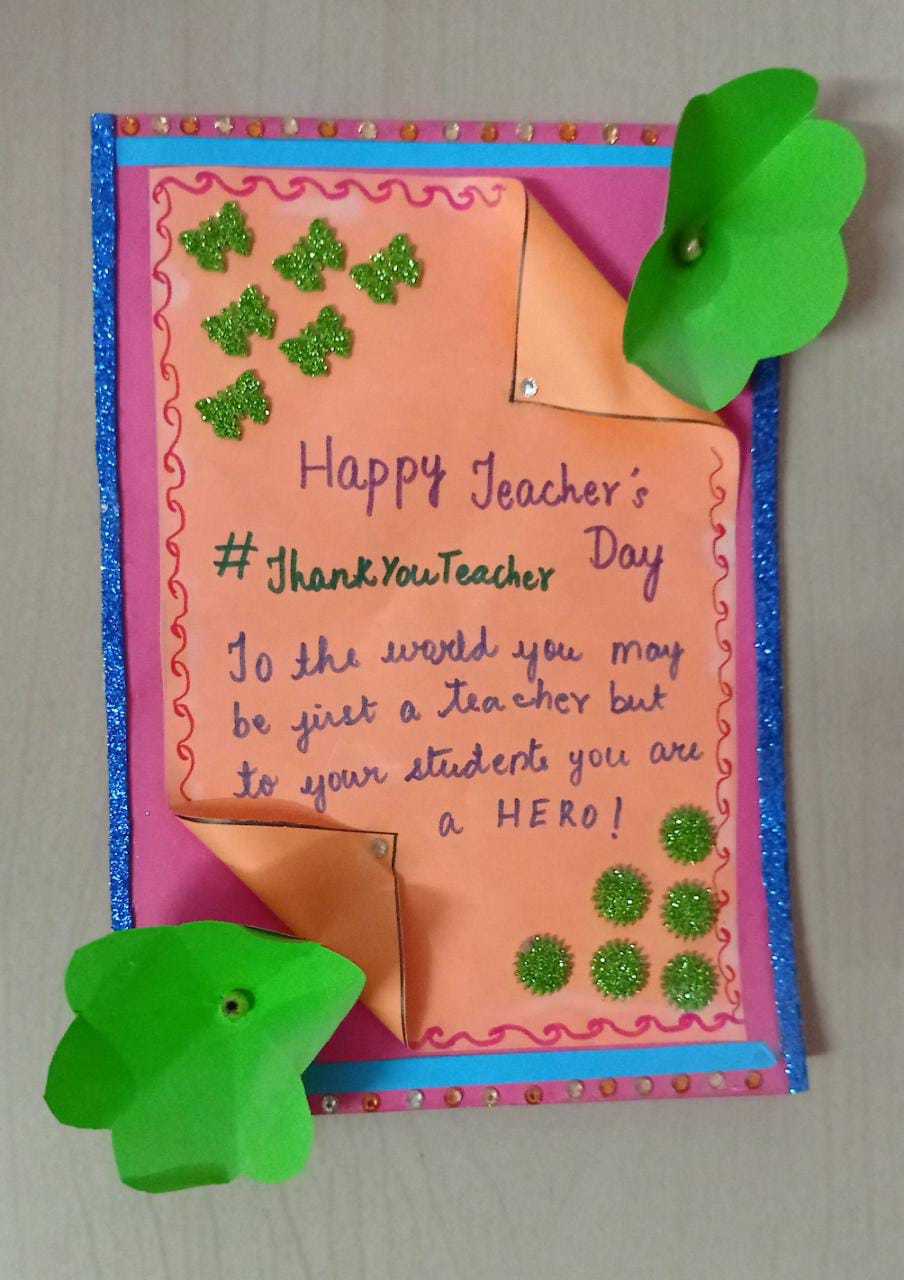 Happy Teacher's
Day
#ThankYouTeacher
To the world you may
be just a teacher but
to your students you are
a HERO!